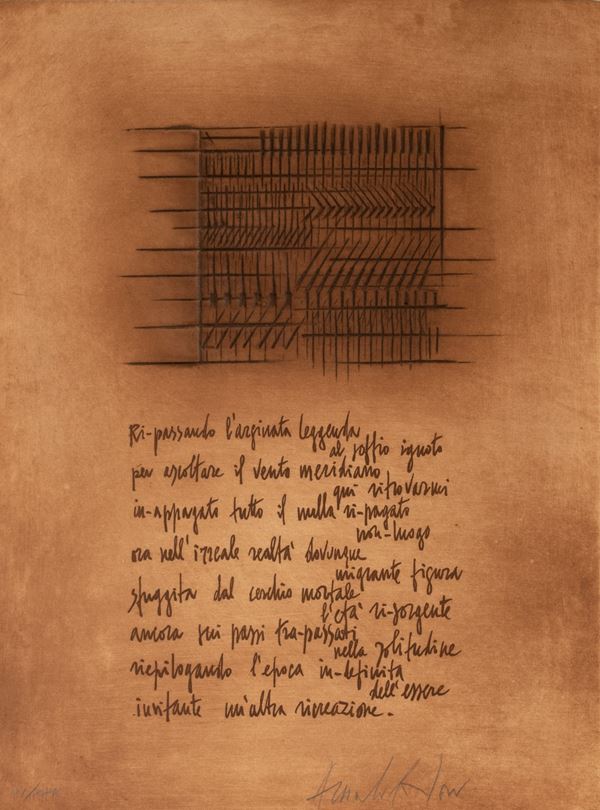 Ri-passando l'arginata leggenda
al soffio ignoto
per ascoltare il vento meridiano
qui ritrovarmi
in-appagato tutto il nulla ri-pagato
non-luogo
ora nell'irreale realtà dovunque
migrante figura
sfuggita dal cerchio mortale
l'età ri-sorgente
ancora sui passi tra-passati
nella solitudine
riepilogando l'epoca in-definita
dell'essere
invitante un'altra ricreazione.